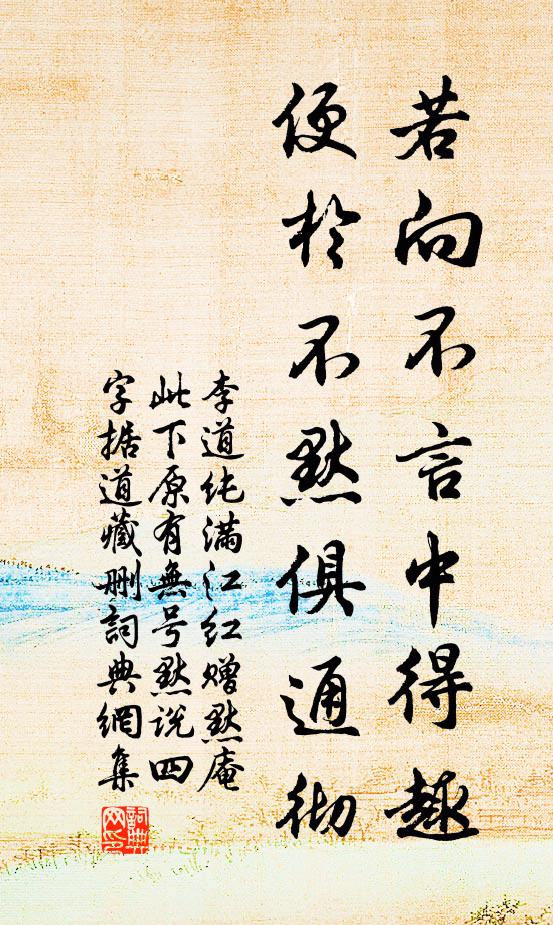 若向不言中得趣
便於不默俱通彻
李道纯满江红赠默庵
此下原有無号默说四
字据道藏删詞典網集
詞典網印